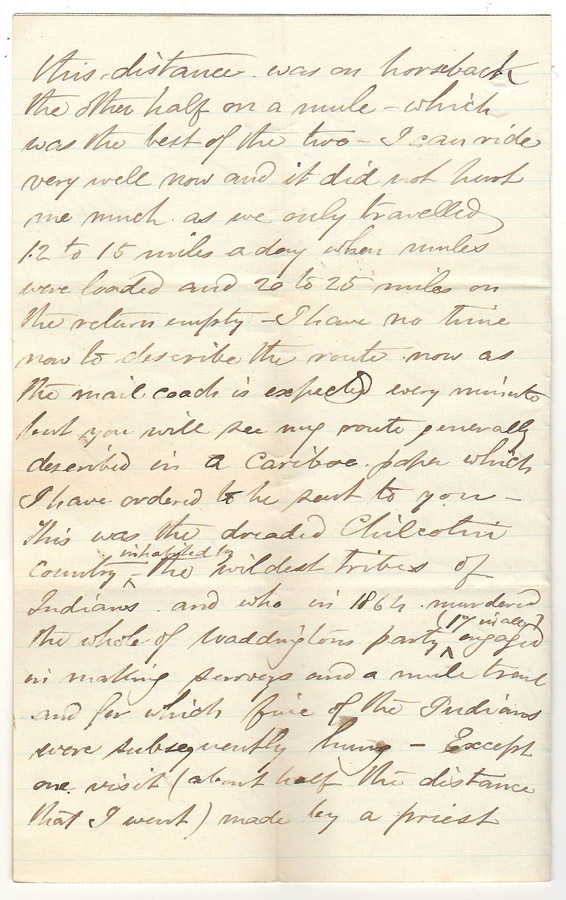 this distance was on horseback
the other half on a mule - which
was the best of the two - I can ride
very well now and it did not hurt
me much as we only travelled
12 to 15 miles a day when mules
were loaded and 20 to 25 miles on
the return empty - I have no time
now to describe the route now as
the mail coach is expected every minute
but you will see my route generally
described in a Cariboo paper which
I have ordered to be sent to you -
This was the dreaded Chilcotin
Country - inhabited by the wildest tribes of
Indians and who in 1864 murdered
the whole of Waddingtons party (17 in all) engaged
in making surveys and a mule trail
and for which five of the Indians
were subsequently hung - Except
one visit (about half the distance
that I went) made by a priest